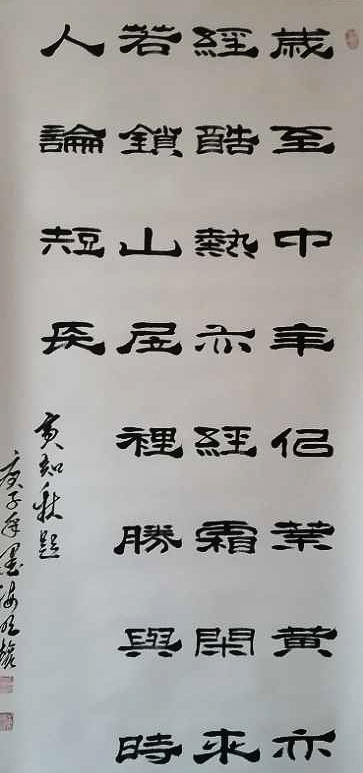 歲至中年佀葉黄亦
經酷熱亦經霜閑來
若鎖山居裡勝與時
人論短長
黄知秋題
庚子年墨海